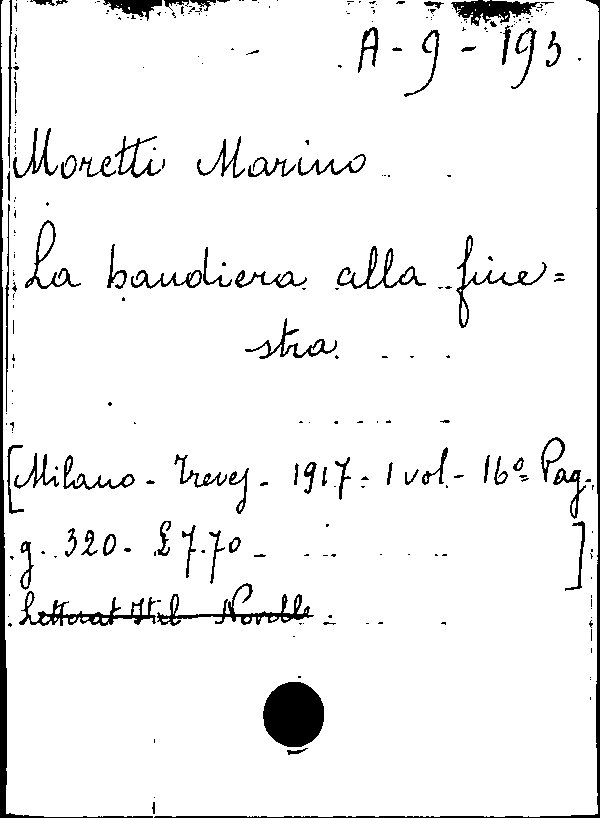 A-9-193.
Moretti Marino
La bandiera alla fine=
stra
[Milano - Treves - 1917 - 1 vol - 16° Pag-
g. 320 - £ 7.70 - ]
Letterat Ital Novelle